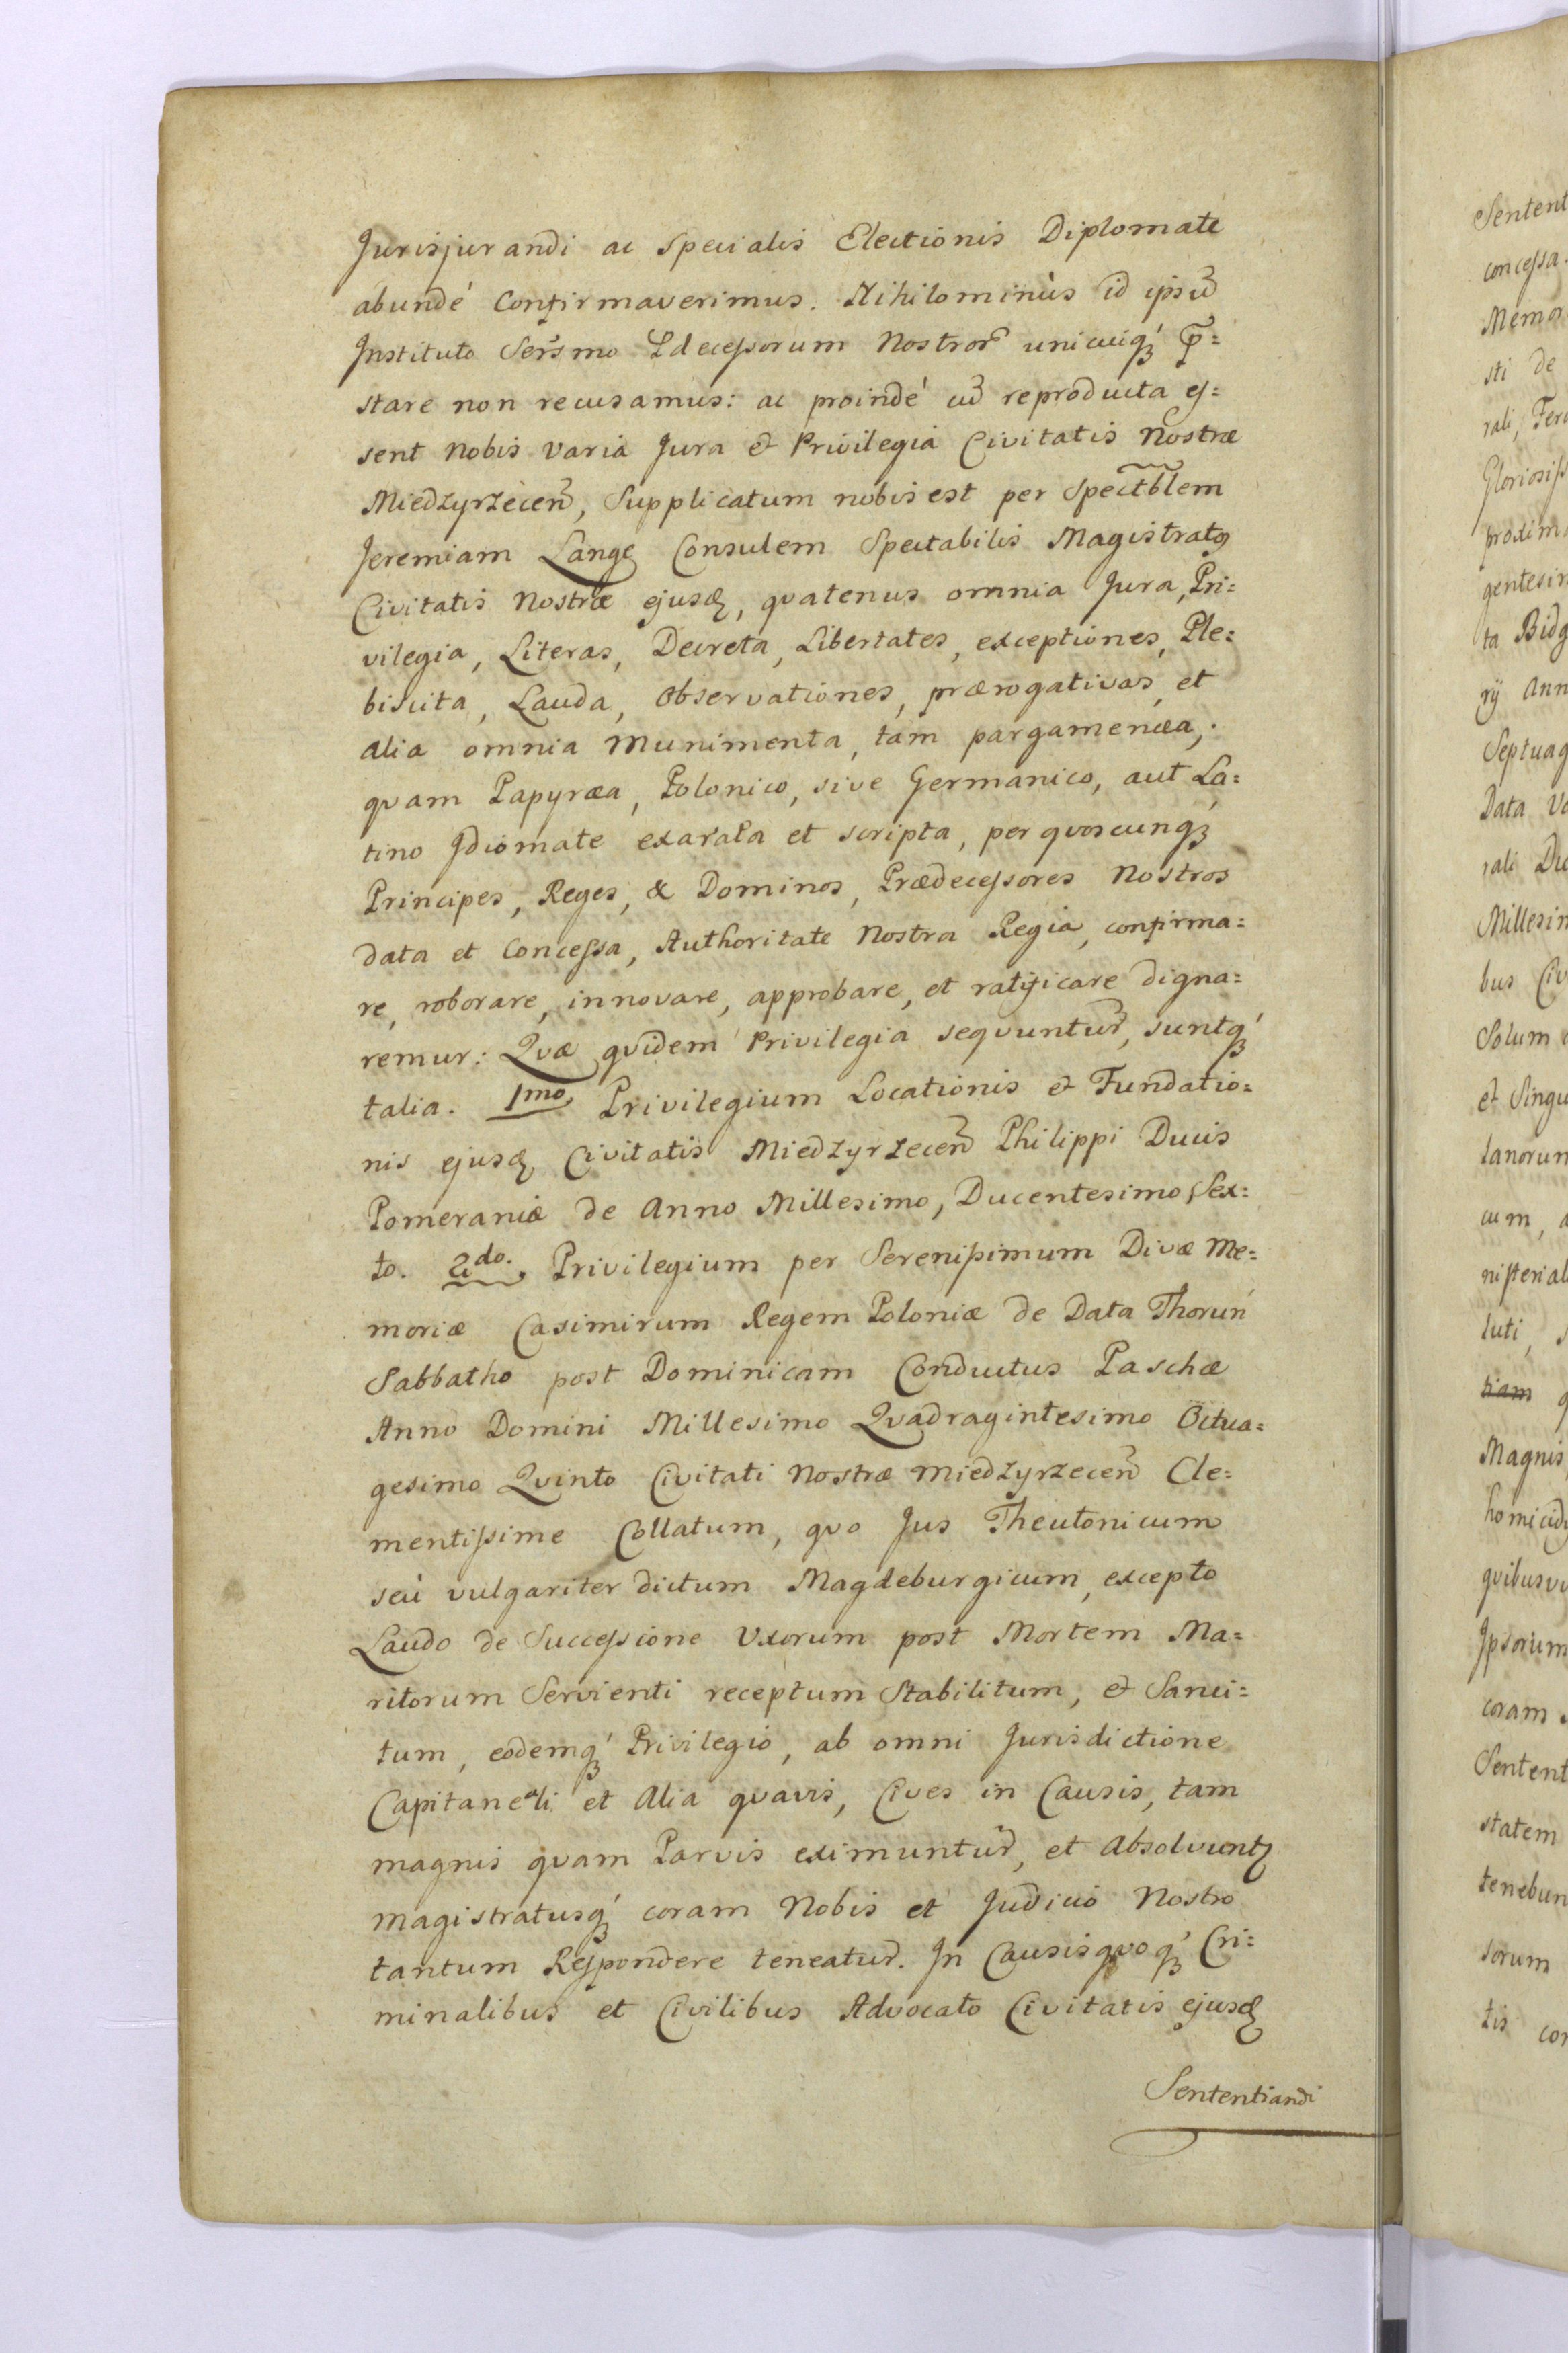 Jurisjurandi ac specialis Electionis Diplomate
abundé Confirmaverimus. Nihilominùs id ipsu̅
Instituto Ser̃smo P̱decessorum Nostror̃ unicuiq́ꝫ p̃=
stare non recusamus: ac proindé cu̅ reproducta es=
sent Nobis varia Jura & Privilegia Civitatis Nostræ
Miedzyrzecen̅, Supplicatum nobis est per Spect̃blem
Jeremiam Lange Consulem Spectabilis Magistratꝰ
Civitatis Nostræ ejusd, qvatenus omnia Jura, Pri=
vilegia, Literas, Decreta, Libertates, exceptiones, Ple=
biscita, Lauda, Observationes, prærogativas, et
alia omnia Munimenta, tam pargamenea,
qvam Papyræa, Polonico, sive Germanico, aut La=
tino Idiomate exarata et scripta, per qvoscunqꝫ
Principes, Reges, & Dominos, Prædecessores Nostros
data et Concessa, Authoritate Nostra Regia, confirma=
re, roborare, innovare, approbare, et ratificare digna=
remur: Qvæ qvidem Privilegia seqvuntur̃, suntq́ꝫ
talia. 1mo Privilegium Locationis & Fundatio=
nis ejusd Civitatis Miedzyrzecen̅ Philippi Ducis
Pomeraniæ de Anno Millesimo, Ducentesimo, Sex=
to. 2do. Privilegium per Serenissimum Divæ Me=
moriæ Casimirum Regem Poloniæ de Data Thoruń
Sabbatho post Dominicam Conductus Paschæ
Anno Domini Millesimo Qvadragintesimo Octua=
gesimo Qvinto Civitati Nostræ Miedzyrzecen̅ Cle=
mentissime Collatum, qvo Jus Theutonicum
seu vulgariter dictum Magdeburgicum, excepto
Laudo de Successione Uxorum post Mortem Ma=
ritorum Servienti receptum Stabilitum, & Sanci=
tum, eodemq́ꝫ Privilegio, ab omni Jurisdictione
Capitaneali et Alia qvavis, Cives in Causis, tam
magnis qvam Parvis eximuntur̃, et Absolvuntꝫ
Magistratusq́ꝫ coram Nobis et Judicio Nostro
tantum Respondere teneatur̃. In Causis qvoq́ꝫ Cri=
minalibus et Civilibus Advocato Civitatis ejusd
Sententiandi
Sentent
concessa
Memor
sti de
rali, Fer
Gloriosiss
proxim
gentesim
ta Bidg
rÿ Ann
Septuag
Data Va
rali Du
Millesim
bus Civ
Solum
et Singu
tanorum
cum, a
nisterial
luti, s
tiam q
Magnis
homicidÿ
qvibusvi
Ipsorum
coram
Sentent
statem
tenebun
sorum
tis cor